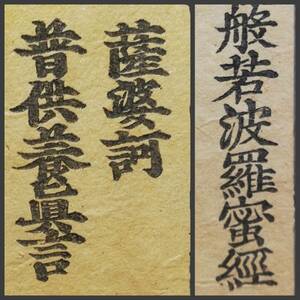 般若波羅蜜經
薩婆訶
普供養眞言